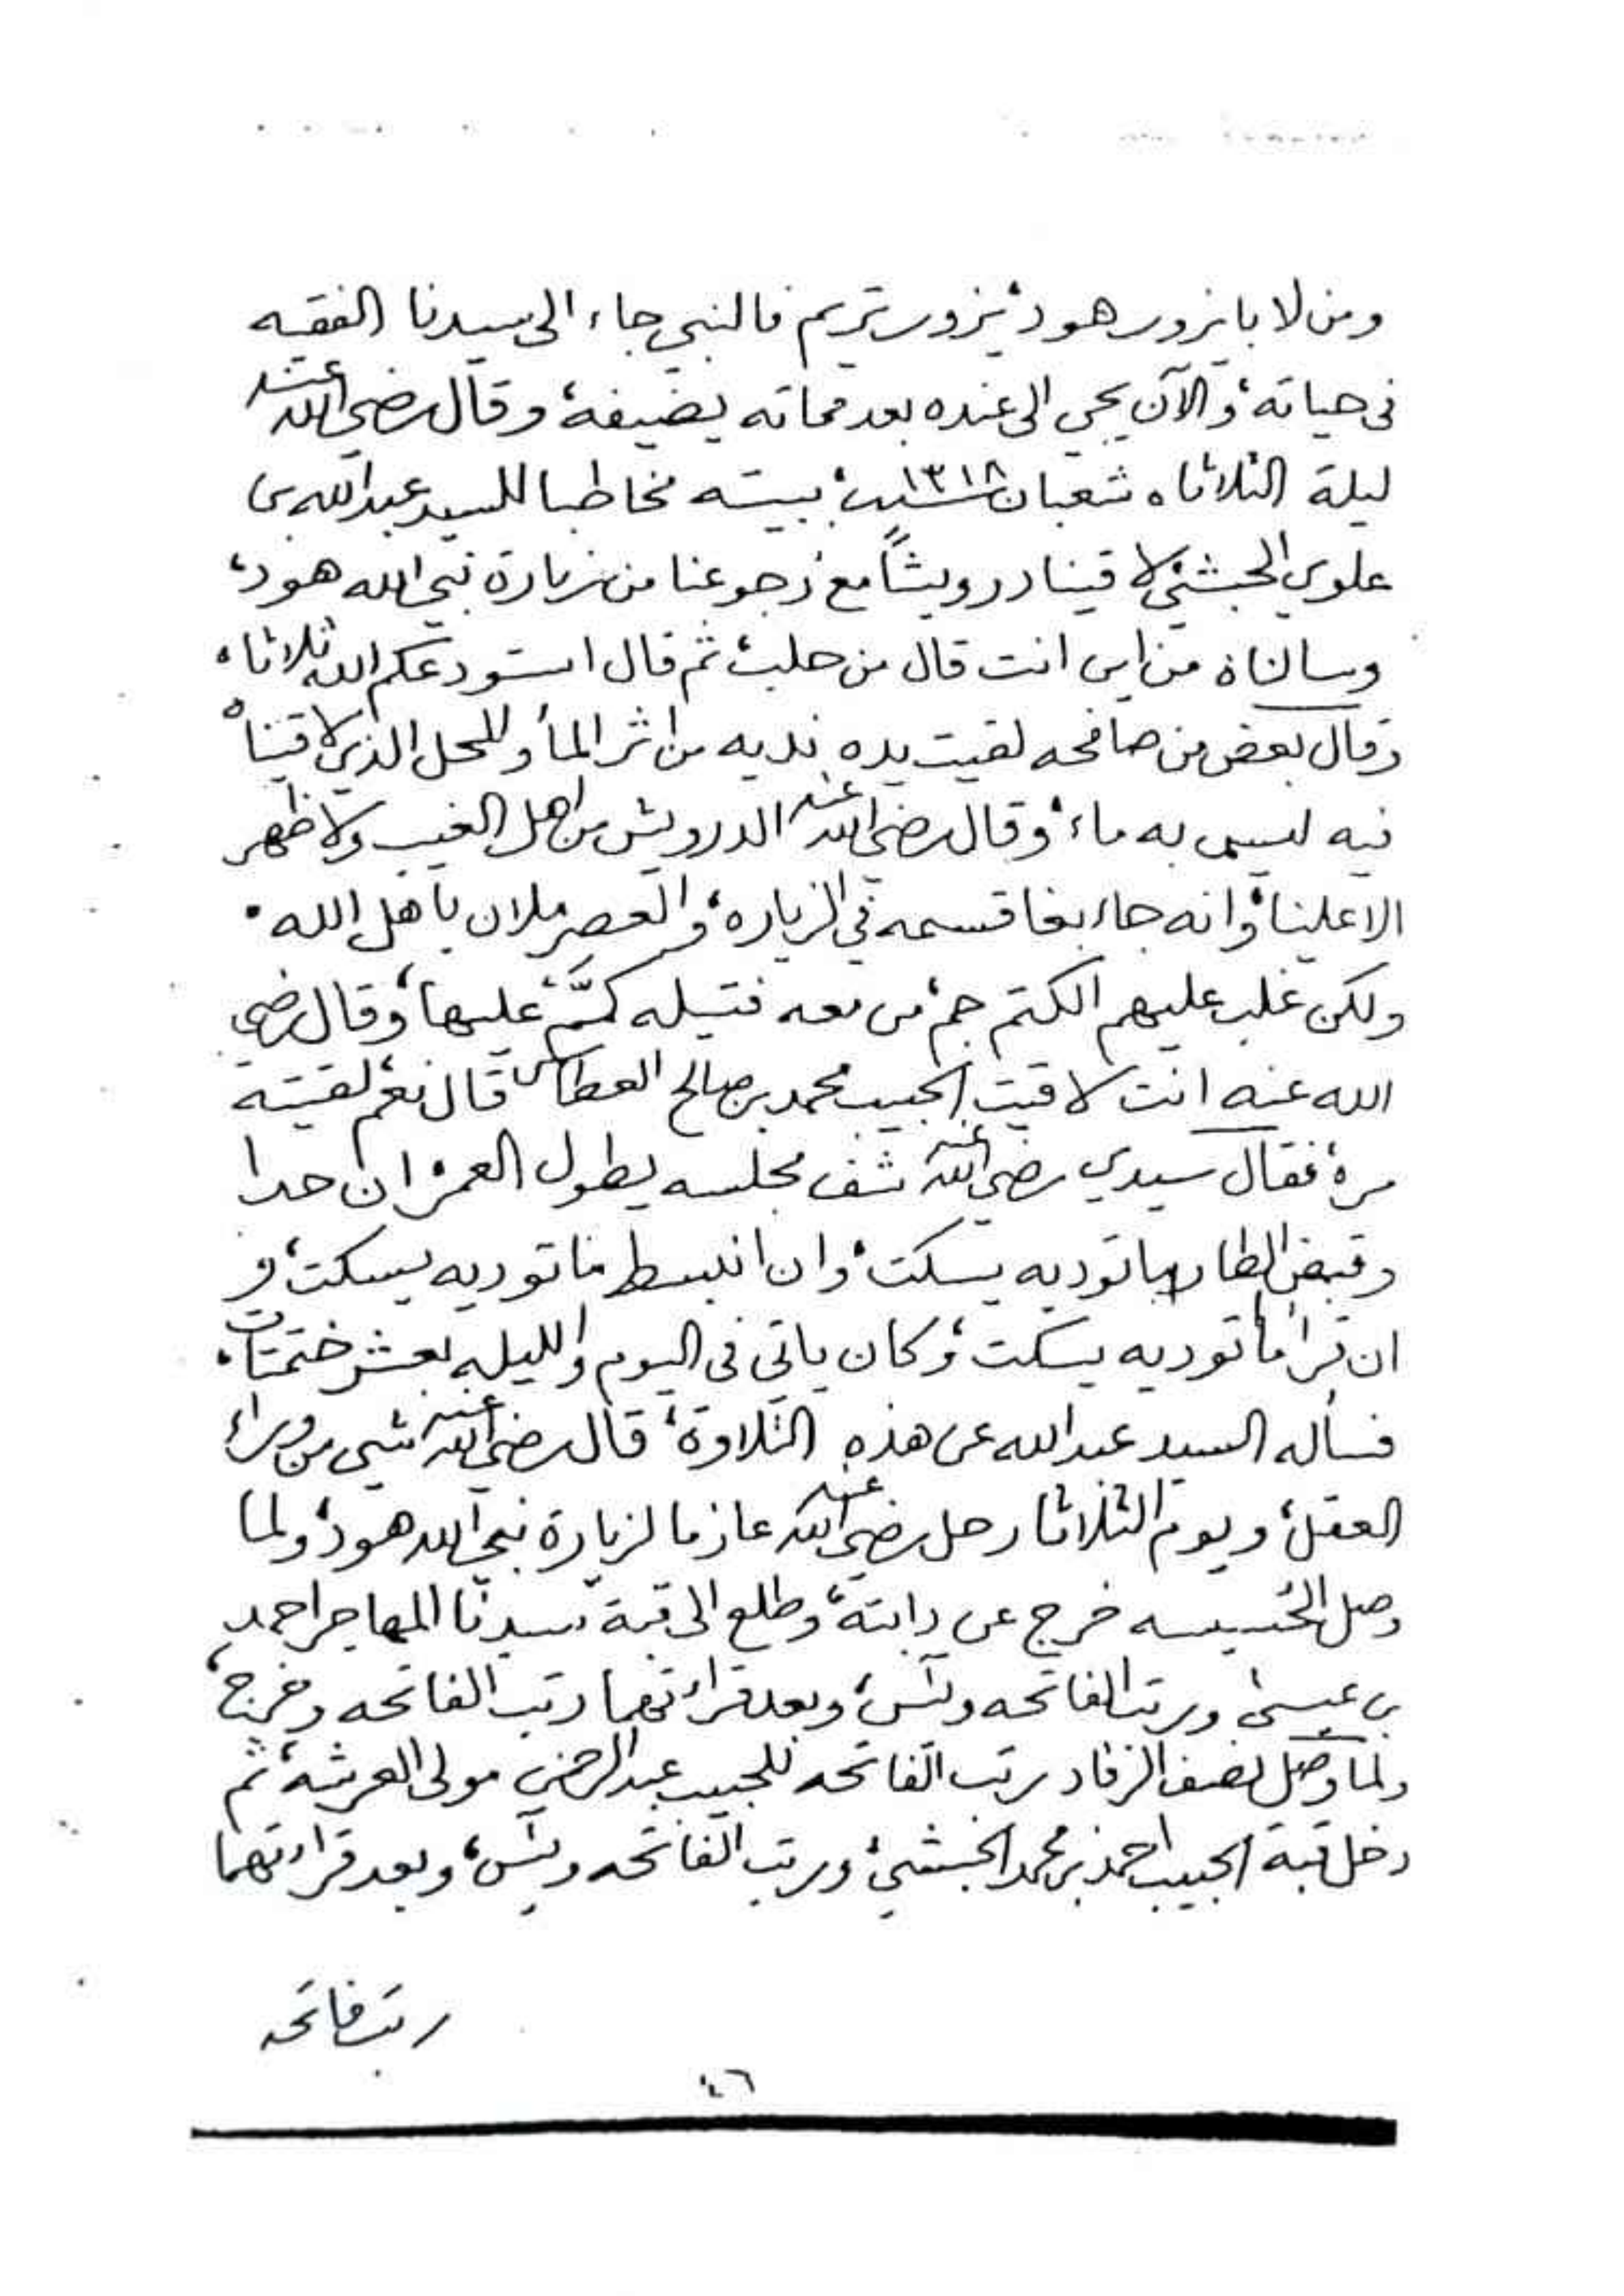 ومن لا بايزور هود، يزور تريم فالنبي جاء الى سيدنا الفقيه
فى حياته، والآن يجي الى عنده بعد مماته يضيفه، وقال رضي الله عنه
ليلة الثلاثاء شعبان سنة ١٣١٨، ببيته مخاطبا للسيد عبدالله بن
علوي الحبشي لاقينا درويشاً مع رجوعنا من زيارة نبي الله هود،
وسالناه من اين انت قال من حلب، ثم قال استودعكم الله ثلاثا،
وقال بعض من صافحه لقيت يده نديه من اثر المأ، والمحل الذي لاقيناه
فيه ليس به ماء، وقال رضي الله عنه الدرويش من اهل الغيب ولا ظهر
الا علينا، وانه جاء بغا قسمه في الزياره، والعصر ملان باهل الله.
ولكن غلب عليهم الكتم جم، من معه فتيله كمَّ، عليها، وقال رضي
الله عنه انت لاقيت الحبيب محمد بن صالح العطاس قال نعم، لقيته
مرة، فقال سيدي رضي الله عنه شف مجلسه يطول العمر، ان حدا
وقبض الطار ما توديه يسكت، وان انبسط ما توديه يسكت، و
ان قرا ما توديه يسكت، وكان ياتى فى اليوم والليله بعشر ختمات،
فسأله السيد عبدالله عن هذه التلاوة، قال رضي الله عنه شي من وراء
العقل، ويوم الثلاثا رحل رضي الله عنه عازما لزيارة نبي الله هود، ولما
وصل الحُسيسه خرج عن دابته، وطلع الى قبة سيدنا المهاجر احمد
بن عيسى ورتب الفاتحه ويس، وبعد قراءتهما رتب الفاتحه وخرج،
ولما وصل لصف الزقاد رتب الفاتحه للحبيب عبدالرحمن مولى العرشه، ثم
دخل قبة الحبيب احمد بن محمد الحبشي، ورتب الفاتحه ويس، وبعد قراءتهما
رتب فاتحه
٤٦